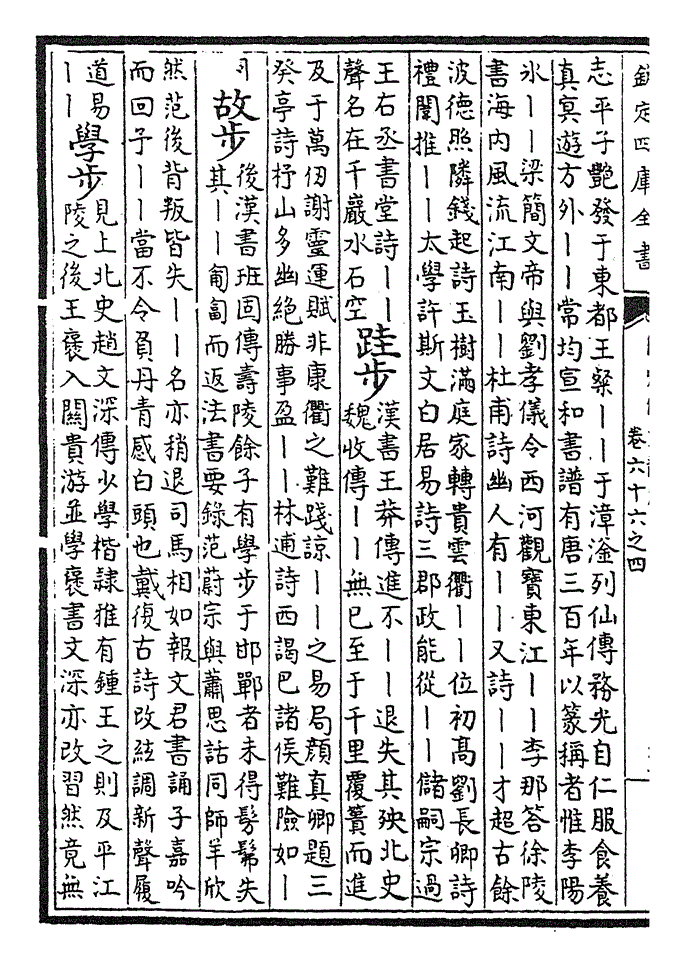 欽定四庫全書
卷六十六之四
志平子艷發于東都王粲｜｜于漳滏列仙傳務光自仁服食養
真冥遊方外｜｜常均宣和書譜有唐三百年以篆稱者惟李陽
氷｜｜梁簡文帝與劉孝儀令西河觀寶東江｜｜李那答徐陵
書海内風流江南｜｜杜甫詩幽人有｜｜又詩｜｜才超古餘
波德照隣錢起詩玉樹滿庭家轉貴雲衢｜｜位初髙劉長卿詩
禮闈推｜｜太學許斯文白居易詩三郡政能從｜｜儲嗣宗過
王右丞書堂詩｜｜
聲名在千巖水石空
跬步
漢書王莽傳進不｜｜退失其殃北史
魏收傳｜｜無已至于千里覆簣而進
及于萬仞謝靈運賦非康衢之難踐諒｜｜之易局顔真卿題三
癸亭詩杼山多幽絶勝事盈｜｜林逋詩西謁巴諸侯難險如｜
｜
故步
後漢書班固傳壽陵餘子有學步于邯鄲者未得髣髴失
其｜｜匍匐而返法書要錄范蔚宗與蕭思話同師羊欣
然范後背叛皆失｜｜名亦稍退司馬相如報文君書誦子嘉吟
而回子｜｜當不令負丹青感白頭也戴復古詩改絃調新聲履
道易
｜｜
學步
見上北史趙文深傳少學楷隸推有鍾王之則及平江
陵之後王褒入關貴游並學褒書文深亦改習然竟無